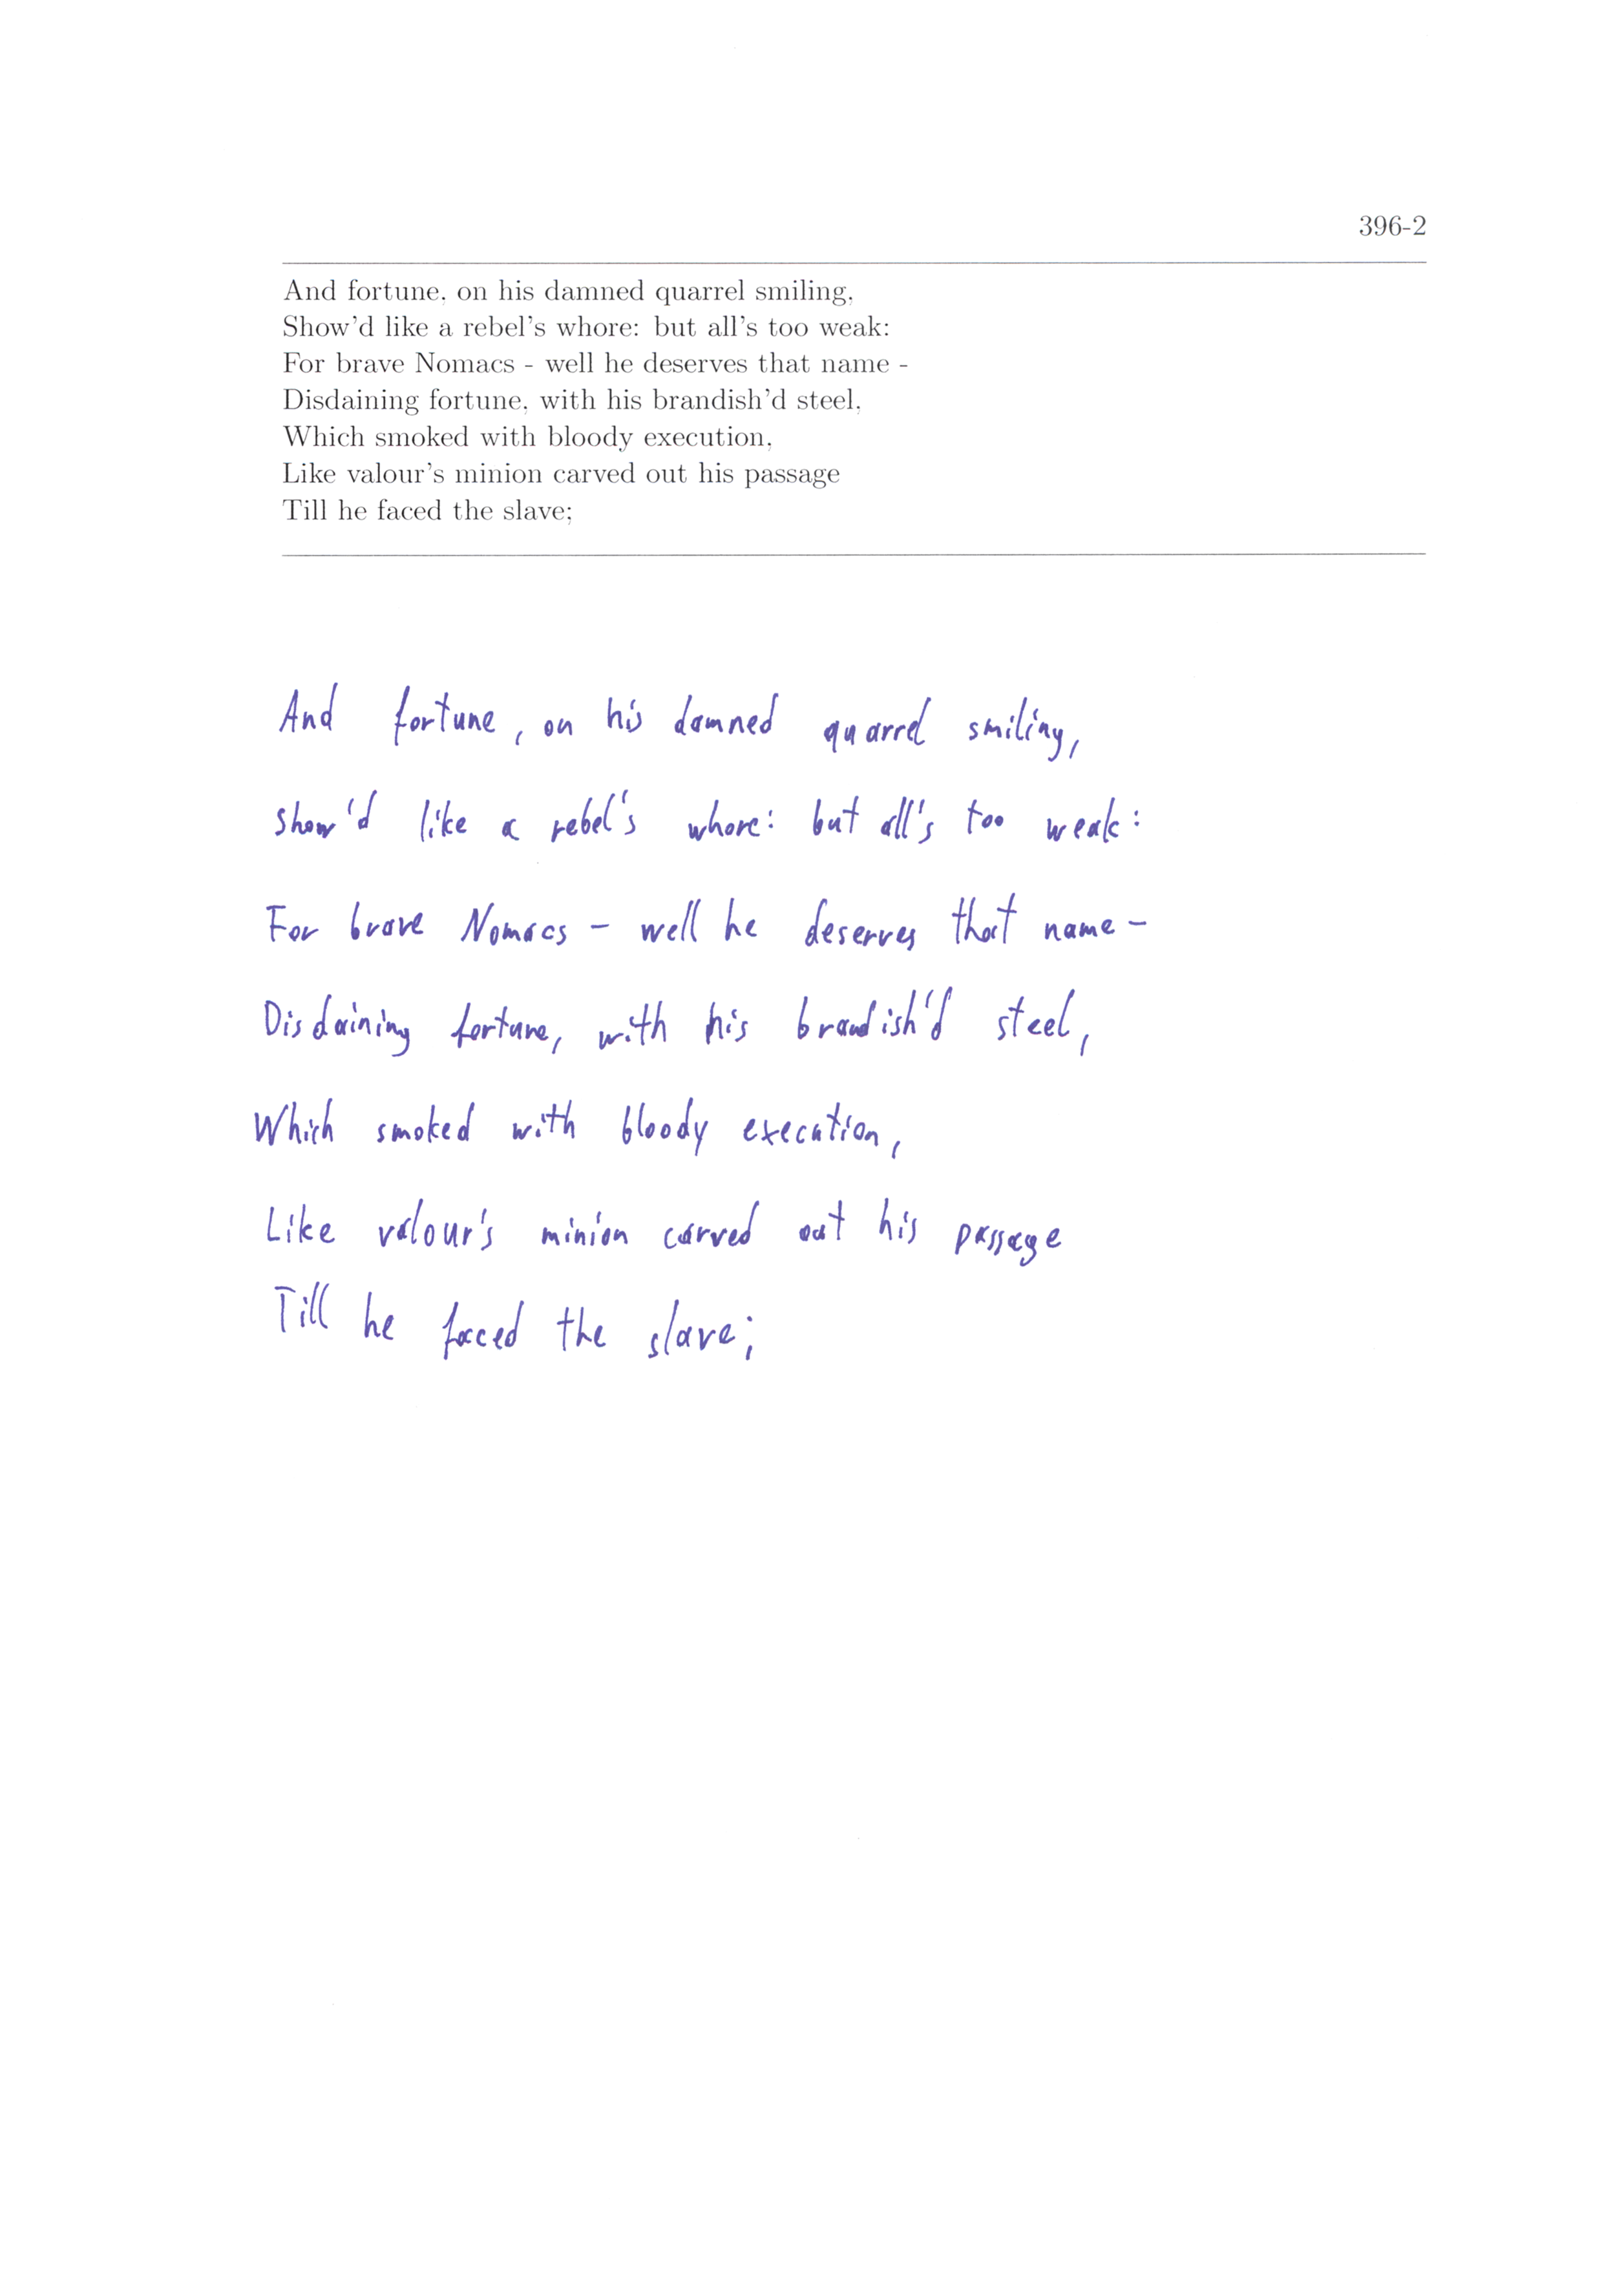 396-2
And fortune, on his damned quarrel smiling,
Show'd like a rebel's whore: but all's too weak:
For brave Nomacs - well he deserves that name -
Disdaining fortune, with his brandish'd steel,
Which smoked with bloody execution,
Like valour's minion carved out his passage
Till he faced the slave;
And fortune, on his damned quarrel smiling,
Show'd like a rebel's whore: but all's too weak:
For brave Nomacs - well he deserves that name -
Disdaining fortune, with his brandish'd steel,
Which smoked with bloody execution,
Like valour's minion carved out his passage
Till he faced the slave;